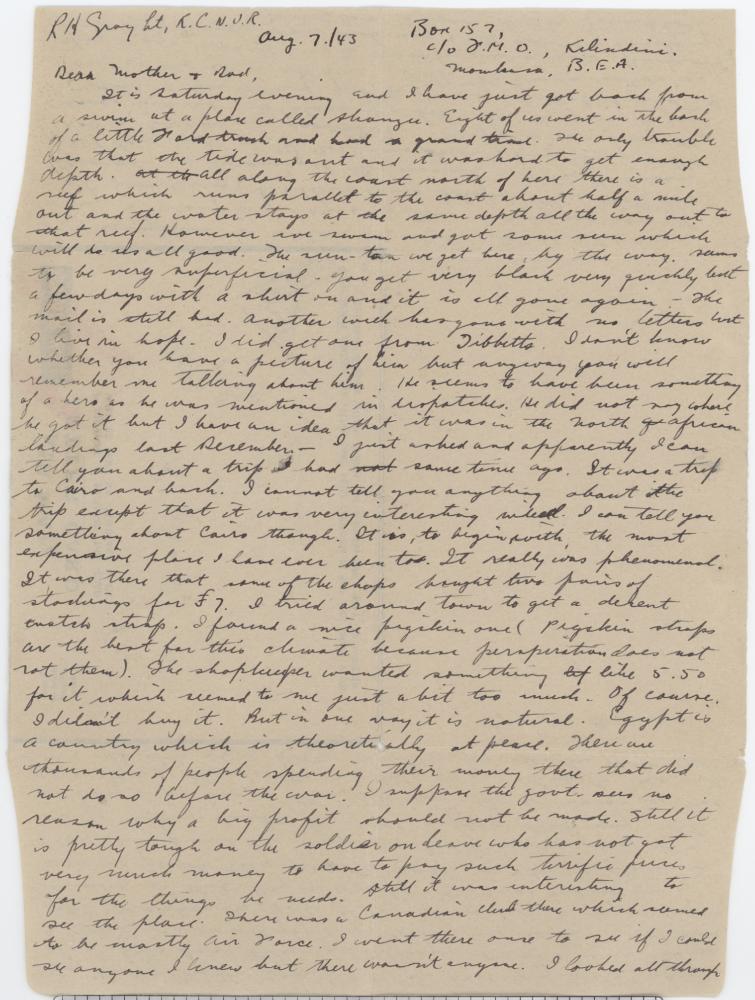 R H Gray Lt, R.C.N.V.R.
Aug. 7./43
Box 157,
c/o F.M.O., Kilindini.
Mombasa, B.E.A.
Dear Mother & Dad,
It is Saturday evening and I have just got back from
a swim at a place called Shanzu. Eight of us went in the back
of a little Ford truck and had a grand time. The only trouble
was that the tide was out and it was hard to get enough
depth. at th All along the coast north of here there is a
reef which runs parallel to the coast about half a mile
out and the water stays at the same depth all the way out to
that reef. However we swam and got some sun which
will do us all good. The sun-tan we get here, by the way, seems
to be very superficial - you get very black very quickly but
a few days with a shirt on and it is all gone again. - The
mail is still bad. Another week has gone with no letters but
I live in hope. I did get one from Tibbetts. I don't know
whether you have a picture of him but anyway you will
remember me talking about him. He seems to have been something
of a hero as he was mentioned in dispatches. He did not say where
he got it but I have an idea that it was in the North African
landings last December. - I just asked and apparently I can
tell you about a trip I had not some time ago. It was a trip
to Cairo and back. I cannot tell you anything about the
trip except that it was very interesting indeed. I can tell you
something about Cairo though. It is, to begin with, the most
expensive place I have ever been too. It really was phenomenal.
It was there that some of the chaps bought two pairs of
stockings for £7. I tried around town to get a decent
watch strap. I found a nice pigskin one (Pigskin straps
are the best for this climate because perspiration does not
rot them). The shopkeeper wanted something like 5.50
for it which seemed to me just a bit too much. Of course,
I didn't buy it. But in one way it is natural. Egypt is
a country which is theoretically at peace. There are
thousands of people spending their money there that did
not do so before the war. I suppose the govt. sees no
reason why a big profit should not be made. Still it
is pretty tough on the soldier on leave who has not got
very much money to have to pay such terrific prices
for the things he needs. Still it was interesting to
see the place. There was a Canadian club there which seemed
to be mostly Air Force. I went there once to see if I could
see anyone I knew but there wasn't anyone. I looked all through